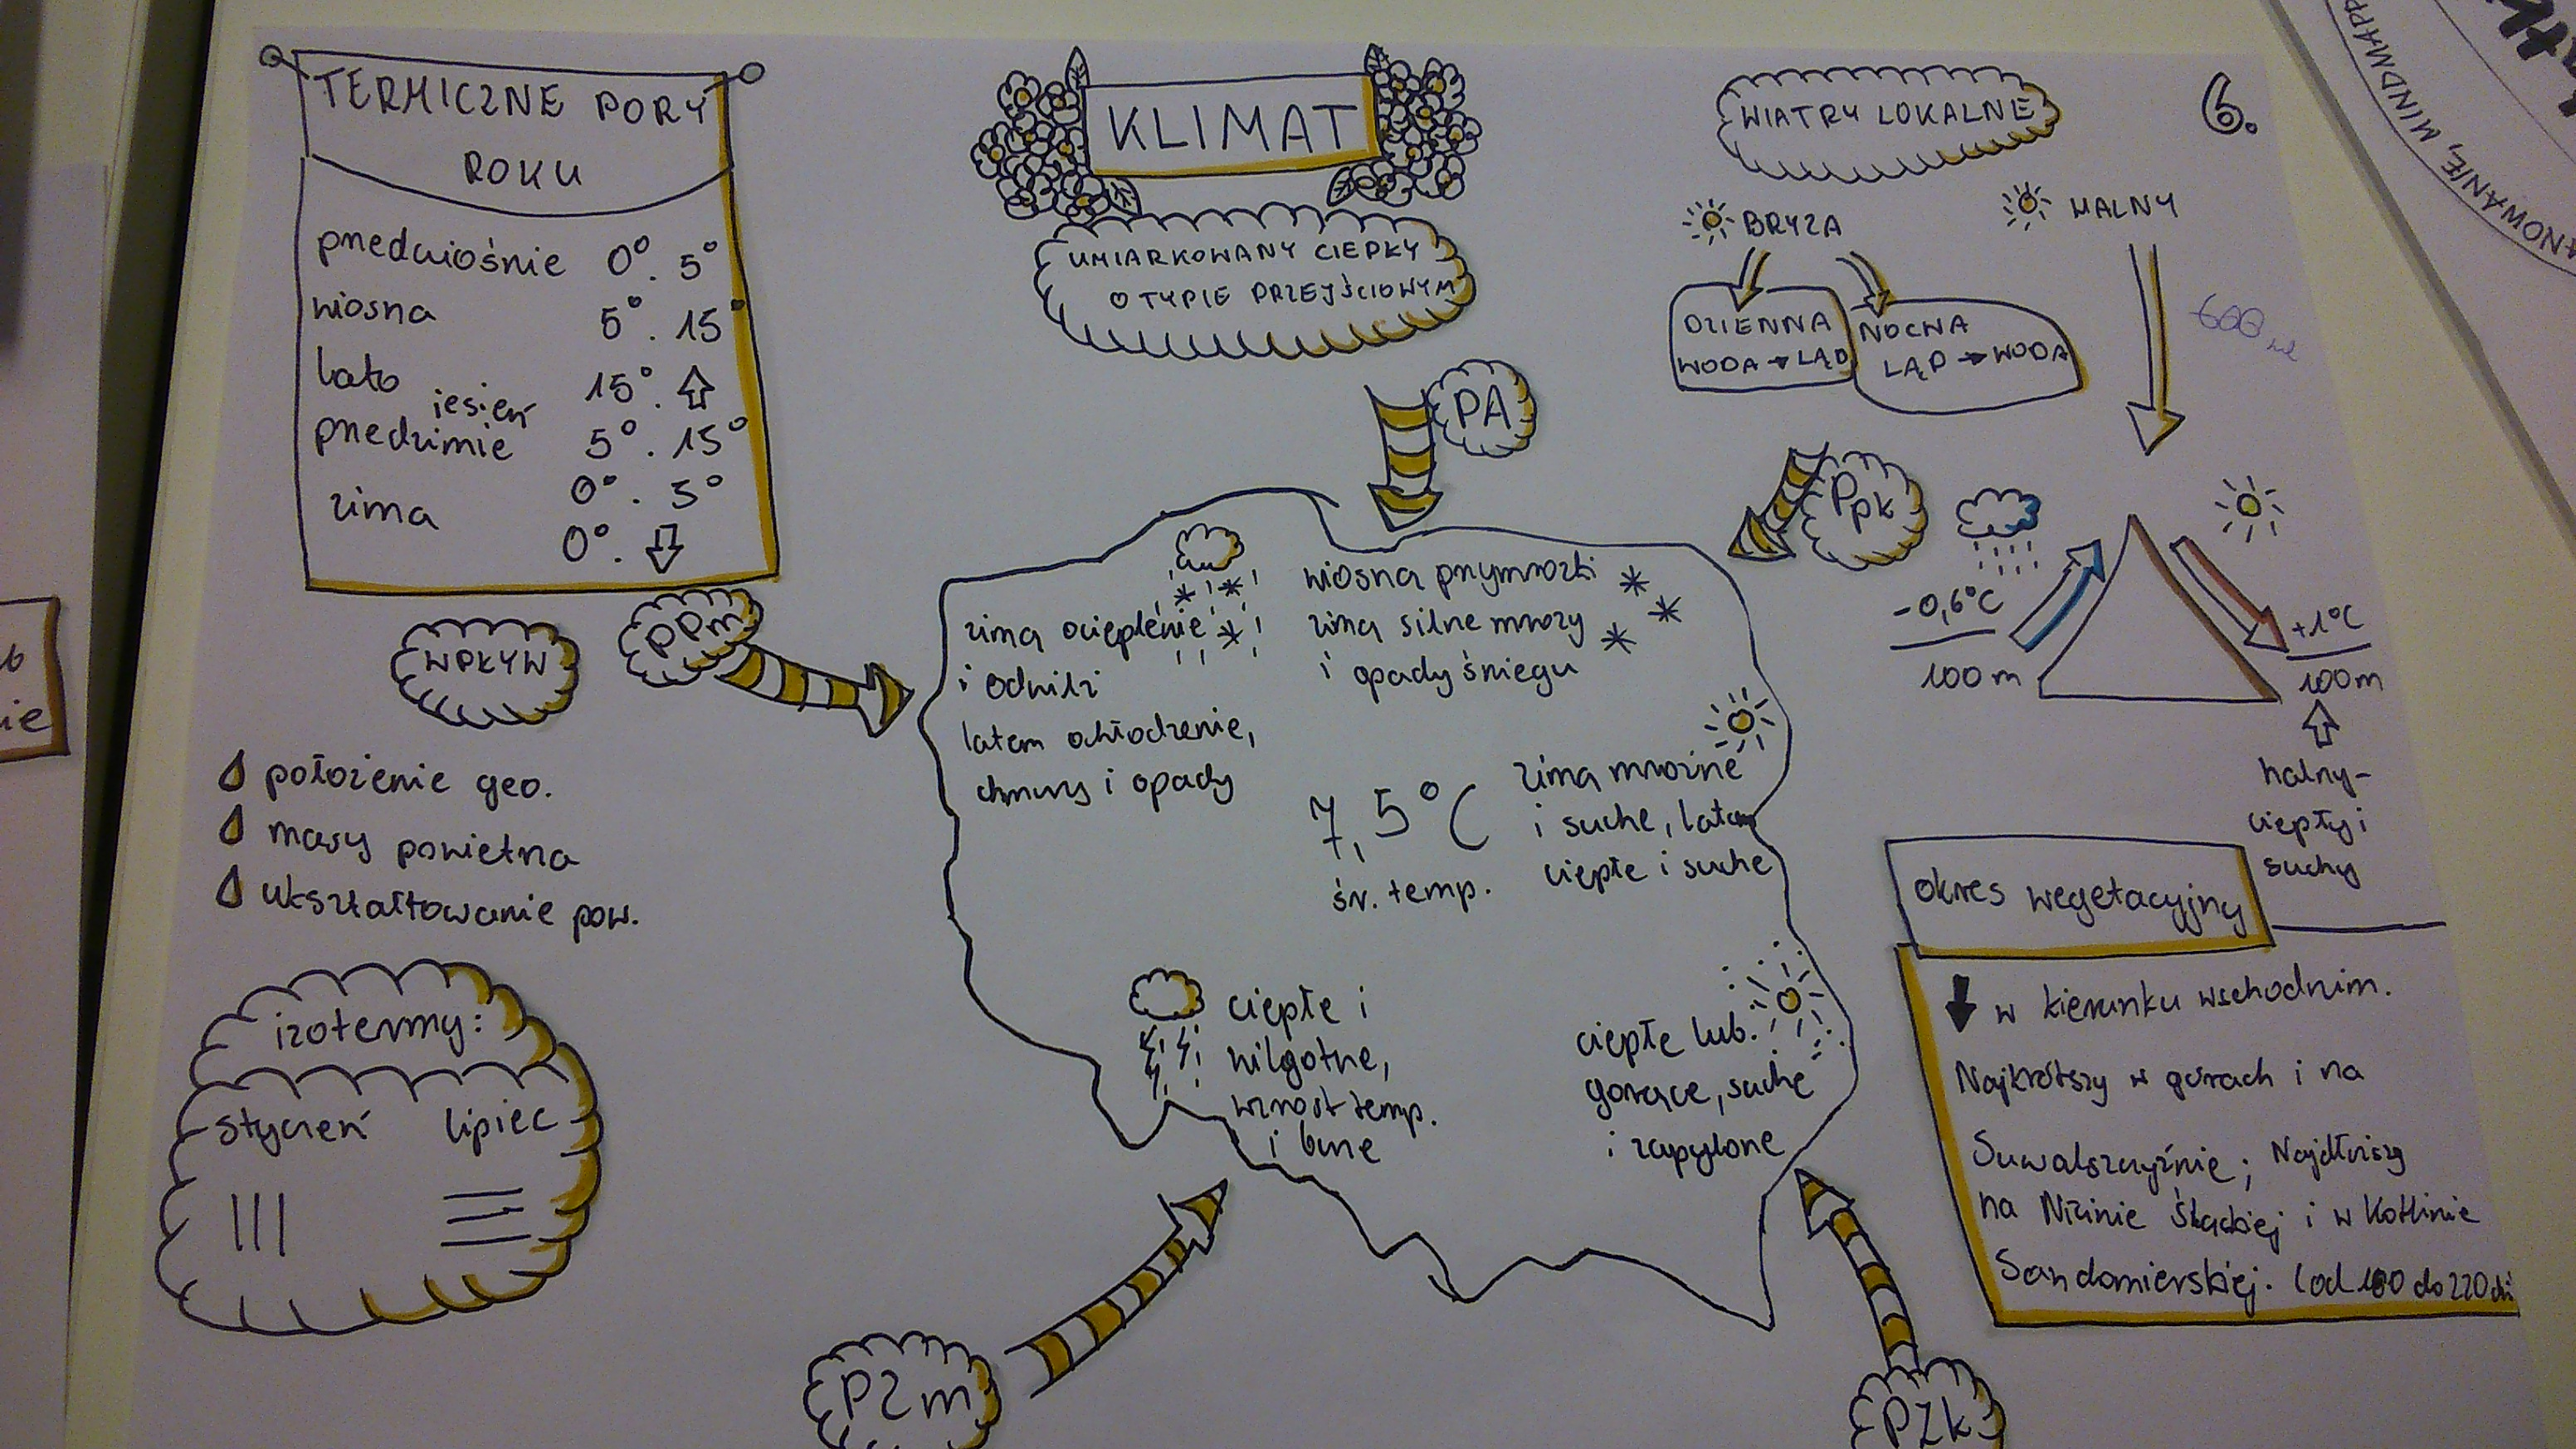 TERMICZNE PORY
ROKU
przedwiośnie 0°. 5°
wiosna 5°. 15°
lato 15°.
jesień
przedzimie 5°. 15°
0°. 5°
zima
0°.
KLIMAT
UMIARKOWANY CIEPŁY
O TYPIE PRZEJŚCIOWYM
WIATRY LOKALNE
6.
BRYZA
HALNY
DZIENNA
WODA → LĄD
NOCNA
LĄD → WODA
600
PA
Ppk
PPm
WPŁYW
położenie geo.
masy powietrza
ukształtowanie pow.
izotermy:
styczeń lipiec
zimą ocieplenie
i odwilż
latem ochłodzenie,
chmury i opady
wiosną przymrozki
zimą silne mrozy
i opady śniegu
7,5°C
śr. temp.
zimą mroźne
i suche, latem
ciepłe i suche
ciepłe i
wilgotne,
wzrost temp.
i burze
ciepłe lub.
gorące, suche
i zapylone
PZm
PZk
-0,6°C
100m
+1°C
100m
halny-
ciepły i
suchy
okres wegetacyjny
w kierunku wschodnim.
Najkrótszy w górach i na
Suwalszczyźnie; Najdłuższy
na Nizinie Śląskiej i w Kotlinie
Sandomierskiej. (od 180 do 220 dni
ANOWANIE, MINDMAPP